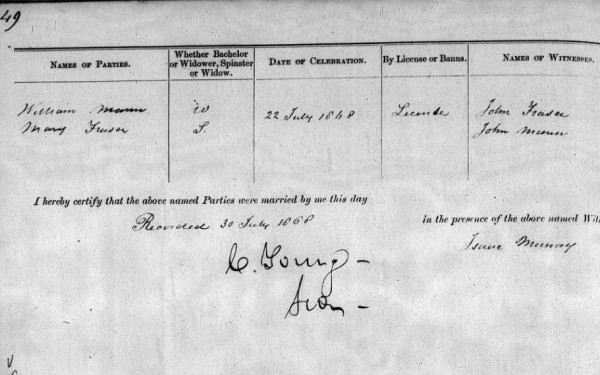 49
NAMES OF PARTIES. Whether Bachelor or Widower, Spinster or Widow. DATE OF CELEBRATION. By License or Banns. NAMES OF WITNESSES.
William Mann W 22 July 1868 License John Fraser
Mary Fraser S. John Mann
I hereby certify that the above named Parties were married by me this day
Recorded 30 July 1868 in the presence of the above named Wit
Isaac Murray
C. Young